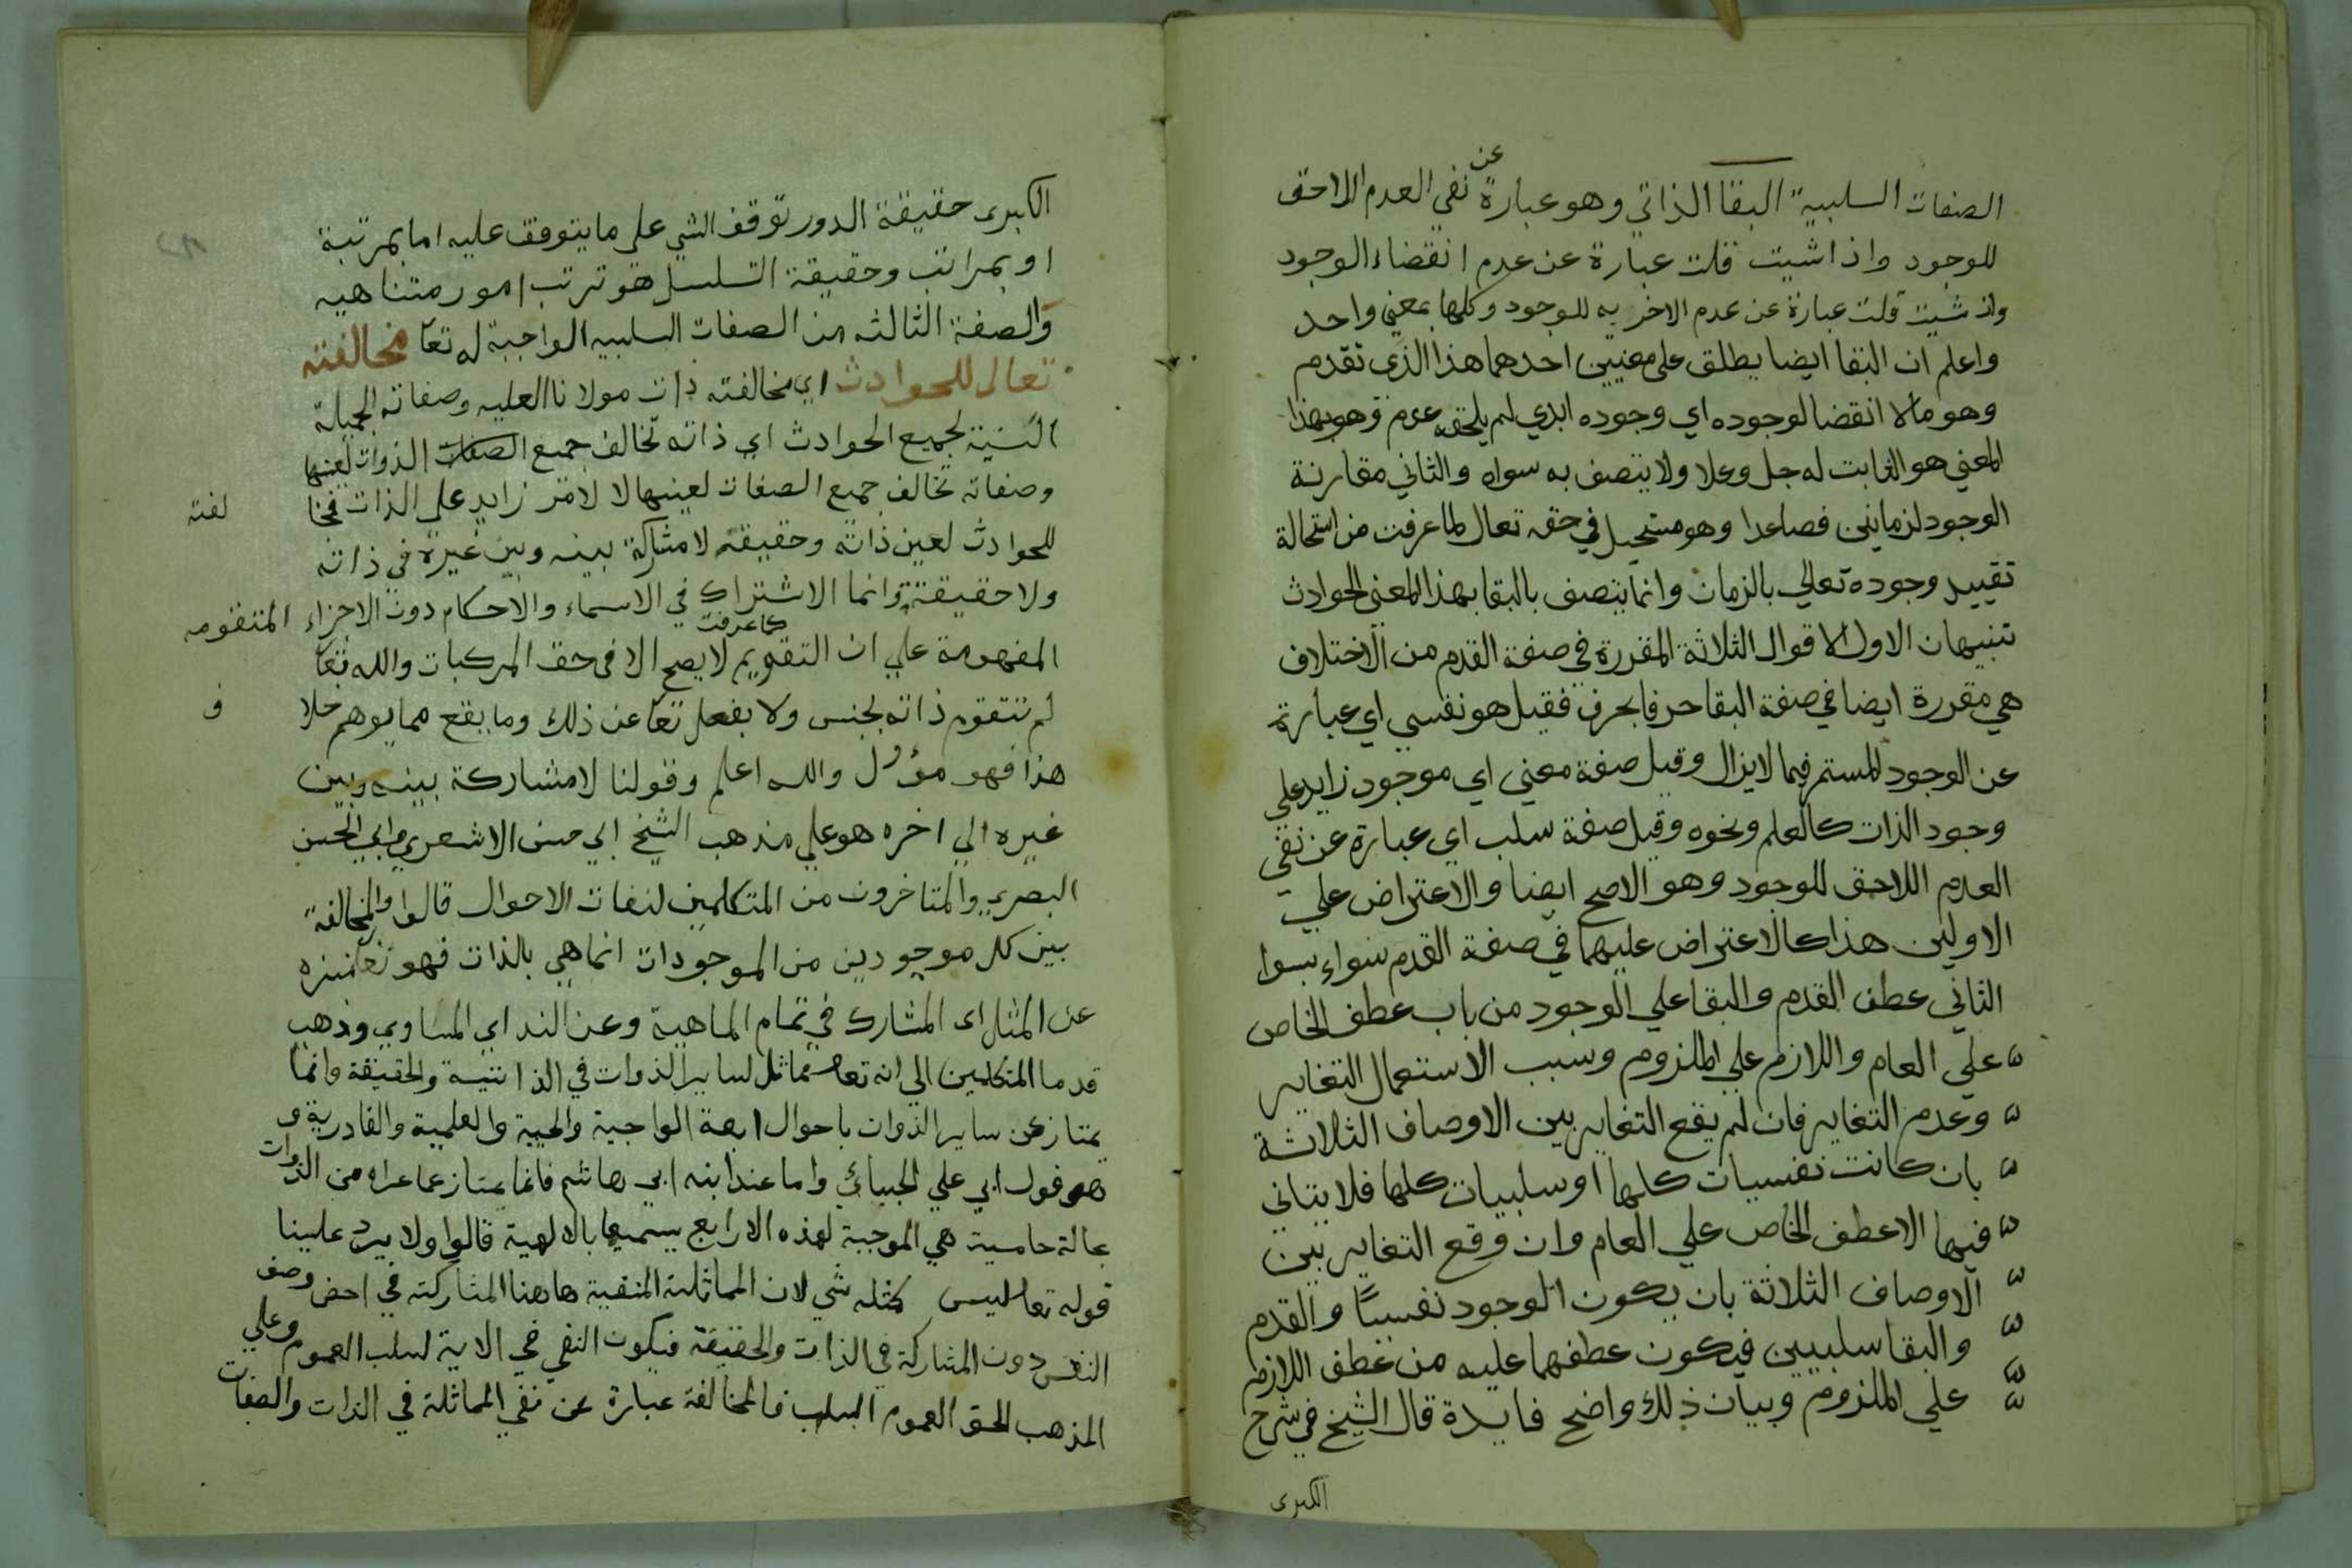 الصفات السلبية البقا الذاتي وهو عبارة عن نفي العدم اللاحق
للوجود واذا شيت قلت عبارة عن عدم انقضاء الوجود
وان شيت قلت عبارة عن عدم الاخرية للوجود وكلها بمعني واحد
واعلم ان البقا ايضا يطلق علي معنيين احدهما هذا الذي تقدم
وهو مالا انقضا لوجوده اي وجوده ابدي لم يلحقه عدم وهو بهذا
المعني هو الثابت له جل وعلا ولا يتصف به سواه والثاني مقارنة
الوجود لزمانين فصاعدا وهو مستحيل في حقه تعالي لما عرفت من استحالة
تقييد وجوده تعالي بالزمان وانما يتصف بالبقا بهذا المعني الحوادث
تنبيهان الاول الاقوال الثلاثة المقررة في صفة القدم من الاختلاف
هي مقررة ايضا في صفة البقا حرفا بحرف فقيل هو نفسي اي عبارة
عن الوجود المستمر فيما لا يزال وقيل صفة معني اي موجود زايد علي
وجود الذات كالعلم ونحوه وقيل صفة سلب اي عبارة عن نفي
العدم اللاحق للوجود وهو الاصح ايضا والاعتراض علي
الاولين هذا كالاعتراض عليهما في صفة القدم سواء بسوا
الثاني عطف القدم والبقا علي الوجود من باب عطف الخاص
علي العام واللازم علي الملزوم وسبب الاستعمال التغاير
وعدم التغاير فان لم يقع التغاير بين الاوصاف الثلاثة
بان كانت نفسيات كلها او سلبيات كلها فلا يتاتي
فيها الا عطف الخاص علي العام وان وقع التغاير بين
الاوصاف الثلاثة بان يكون الوجود نفسيا والقدم
والبقا سلبيين فيكون عطفهما عليه من عطف اللازم
علي الملزوم وبيان ذلك واضح فايدة قال الشيخ في شرح
الكبرى
الكبرى حقيقة الدور توقف الشي علي ما يتوقف عليه اما بمرتبة
او بمراتب وحقيقة التسلسل هو ترتب امور متناهيه
والصفة الثالثه من الصفات السلبيه الواجبة له تعا مخالفته
تعالى للحوادث اي مخالفته ذات مولانا العليه وصفاته الجميلة
السنية لجميع الحوادث اي ذاته تخالف جميع الصفات الذوات لعينها
وصفاته تخالف جميع الصفات لعينها لا لامر زايد علي الذات فمخا لفته
للحوادث لعين ذاته وحقيقته لا مشاركة بينه وبين غيره في ذاته
ولا حقيقة وانما الاشتراك في الاسماء والاحكام دون الاجزاء المتقومه
المفهومة علي ان التقويم كما عرفت لا يصح الا في حق المركبات والله تعا
لم تتقوم ذاته بجنس ولا بفصل تعا عن ذلك وما يقع مما يوهم خلا ف
هذا فهو مؤول والله اعلم وقولنا لا مشاركة بينه وبين
غيره الي اخره هو علي مذهب الشيخ ابي حسن الاشعري وابي الحسن
البصري والمتاخرون من المتكلمين لنفات الاحوال قالوا والمخالفة
بين كل موجودين من الموجودات انما هي بالذات فهو تعا منزه
عن المثل اى المشارك في تمام الماهية وعن الند اي المساوي وذهب
قدما المتكلمين الي انه تعا مماثل لساير الذوات في الذاتية والحقيقة وانما
يمتاز عن ساير الذوات باحوال اربعة الواجبية والحيية والعلمية والقادرية و
هو قول ابي علي الجبائ واما عند ابنه ابي هاشم فانما يمتاز عما عداه من الذوات
بحالة خامسة هي الموجبة لهذه الاربع يسميها بالالهية قالوا ولا يرد علينا
قوله تعا ليس كمثله شي لان المماثلة المنفية هاهنا المشاركة في اخص وصف
النفس دون المشاركة في الذات والحقيقة فيكون النفي في الاية لسلب العموم وعلي
المذهب الحق العموم السلب فالمخالفة عبارة عن نفي المماثلة في الذات والصفات